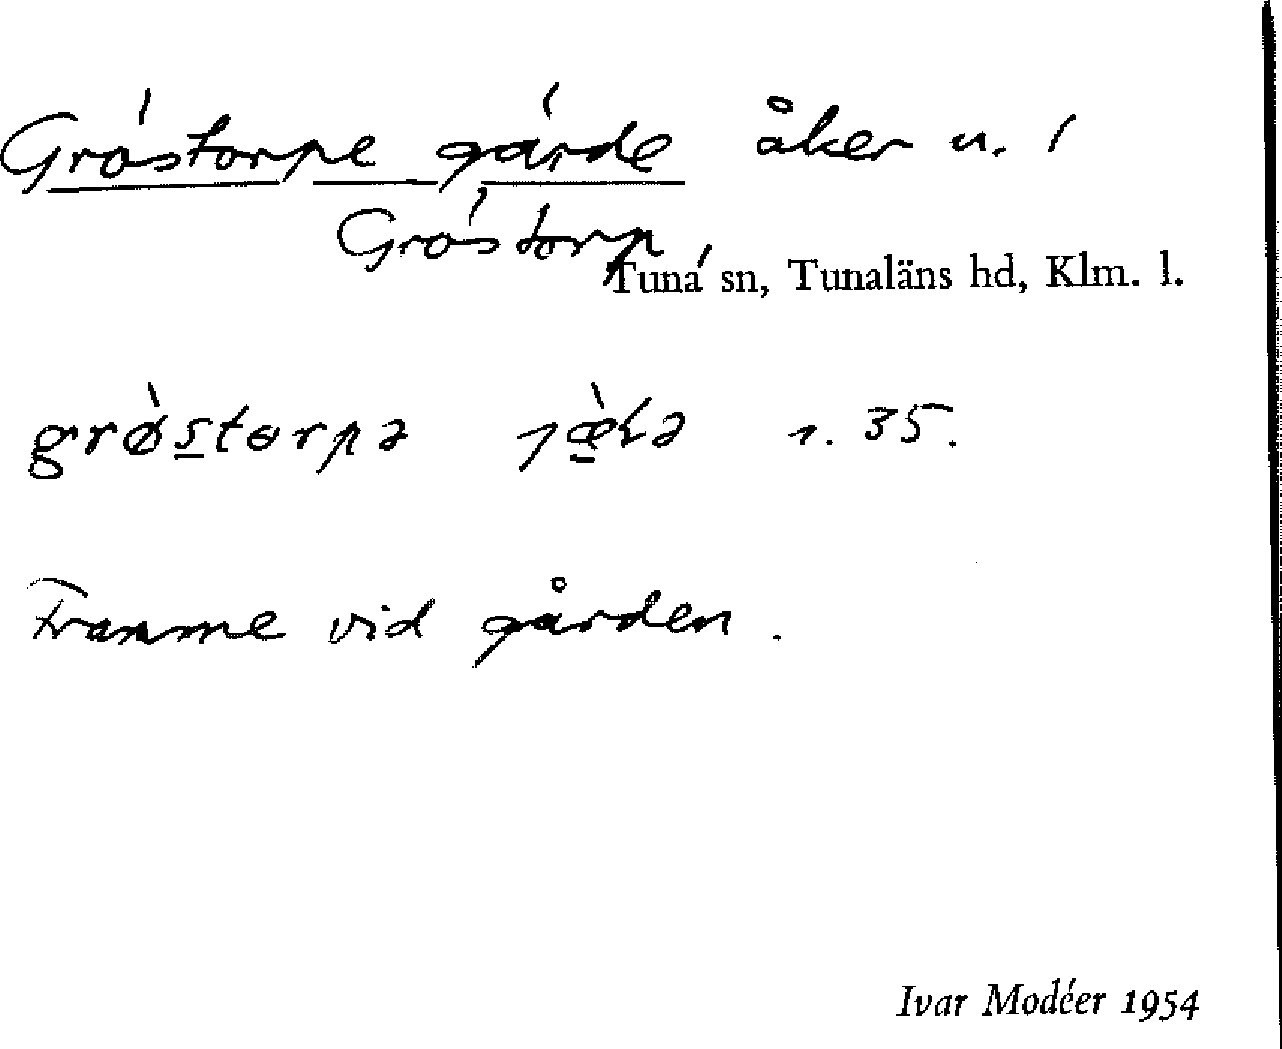 Gröstorpe gärde åker u. i
Gröstorp,
Tuna sn, Tunaläns hd, Klm. l.
grø̀storpə 35.
Framme vid gården.
Ivar Modéer 1954